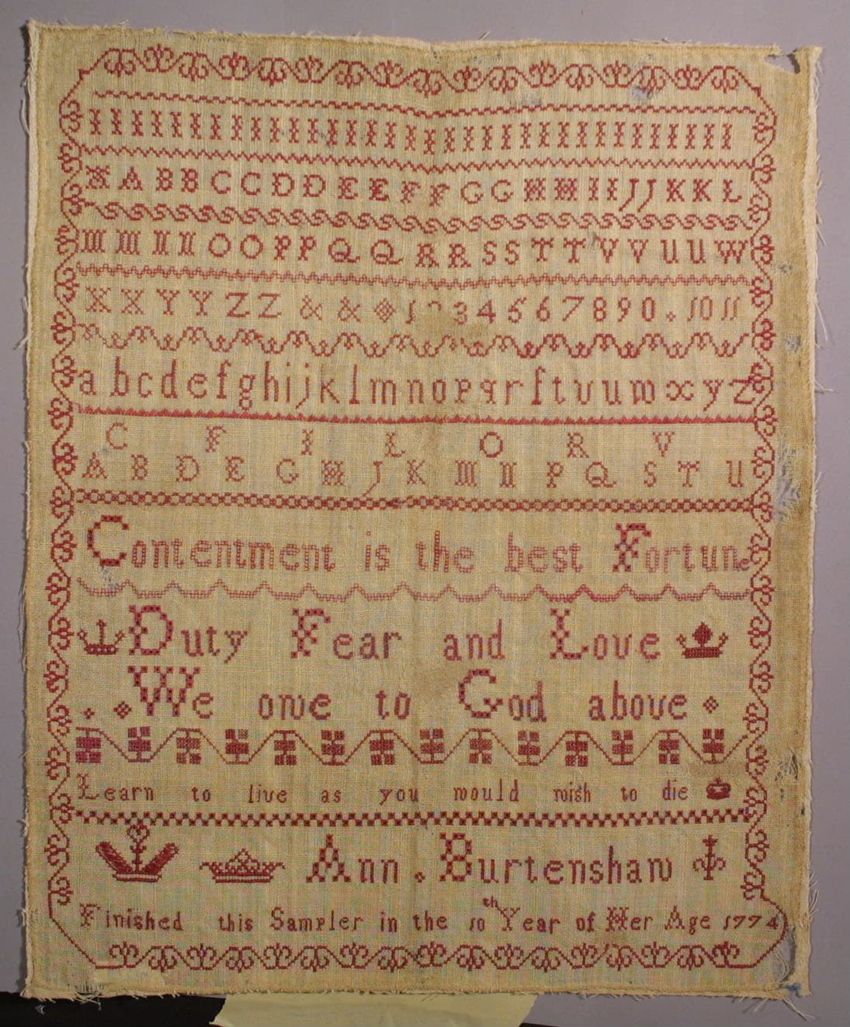 A A B B C C D D E E F F G G H H I I J J K K L
M M N N O O P P Q Q R R S S T T V V U U W
X X Y Y Z Z & & 1 2 3 4 5 6 7 8 9 0 . 10 11
a b c d e f g h i j k l m n o p q r ſ t v u w x y z
C F I L O R V
A B D E G H J K M N P Q S T U
Contentment is the best Fortune
Duty Fear and Love
We owe to God above
Learn to live as you would wish to die
Ann . Burtenshaw
Finished this Sampler in the 10th Year of Her Age 1774